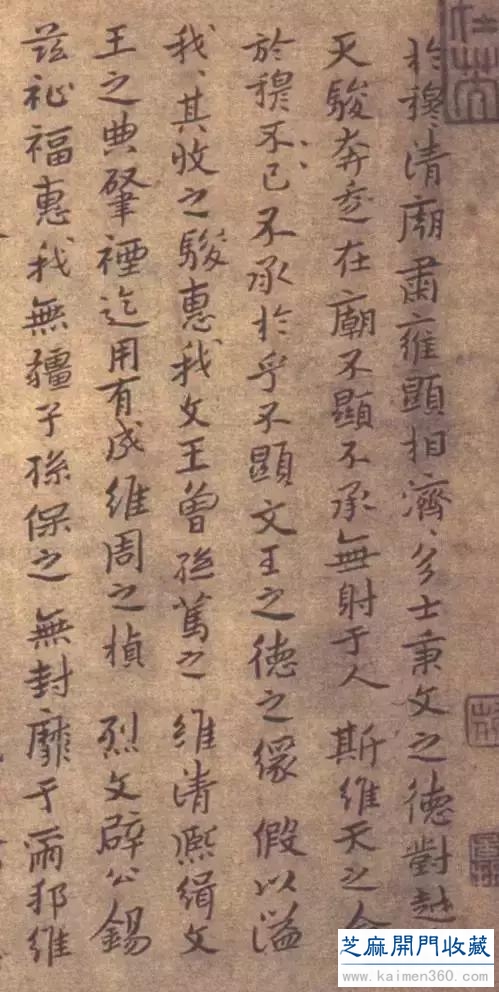 於穆清廟肅雍顯相濟、多士秉文之德對越
天駿奔走在廟不顯不承無射于人 斯維天之命
於穆不已不承於乎不顯文王之德之純 假以溢
我、其收之駿惠我文王曾孫篤之 維清熙緝文
王之典肇禋迄用有成維周之楨 烈文辟公錫
茲祉福惠我無疆子孫保之 無封靡于爾邦維
芝麻開門收藏
www.kaimen360.com